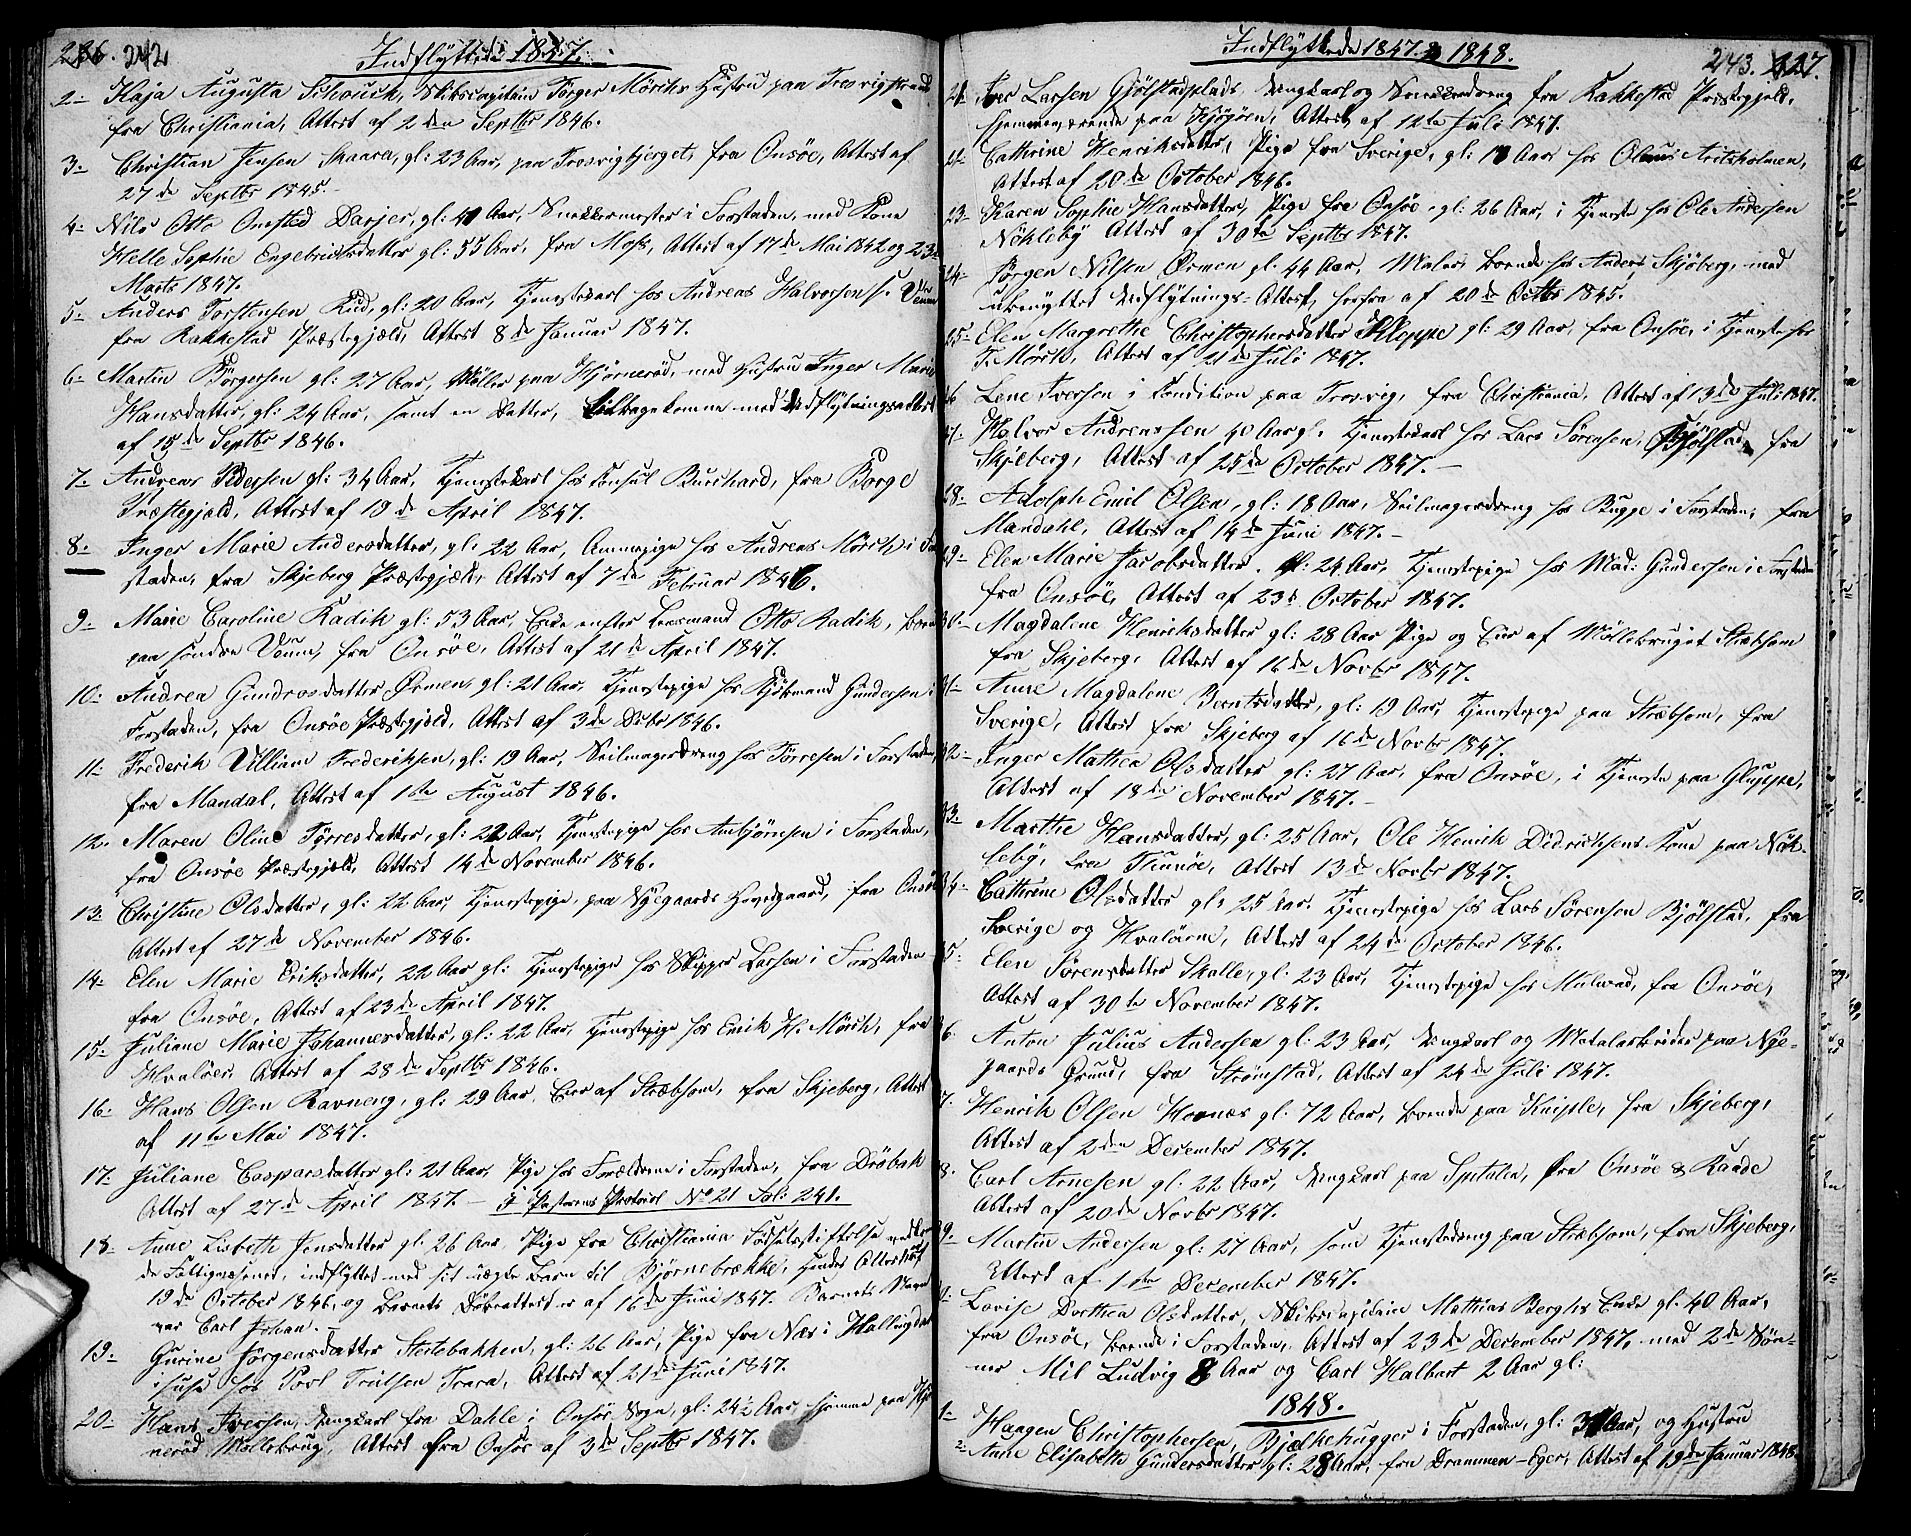 236. 242
Indflyttede 1847.
2- Kaja Augusta Schouch, Skibscapitain Torger Mörchs Hustru paa Trosvigstrand
fra Christiania, Attest af 2den Septbr 1846.
3- Christian Jensen Skaara, gl: 23 Aar, paa Trosvigbjerget, fra Onsöe, Attest af
27de Septbr 1845.-
4- Nils Otto Onsted Darjer, gl: 41 Aar, Snekkermester i Forstaden, med Kone
Helle Sophie Engebrictsdatter gl: 55 Aar, fra Moss, Attest af 17de Mai 1842 og 23de
Marts 1847.
5- Anders Torstensen Rud, gl: 20 Aar, Tjenestekarl hos Andreas Halvorsen s. Veum
fra Rakkestad Præstegjeld, Attest 8de Januar 1847.
6- Martin Börgersen gl: 27 Aar, Möller paa Hjörnerød, med Hustru Inger Marie
Hansdatter, gl: 24 Aar, samt en Datter, tilbagekomne med Udflytningsattest
af 15de Septbr 1846.
7- Andreas Pedersen gl: 34 Aar, Tjenestekarl hos Consul Burchard, fra Borge
Præstegjæld, Attest af 19de April 1847.
8- Inger Marie Andersdatter, gl: 22 Aar, Ammepige hos Andreas Mörch i For
staden, fra Skjeberg Præstegjæld, Attest af 7de Februar 1846.
9- Marie Caroline Radik gl: 53 Aar, Enke efter Lensmand Otto Radik, boende
paa söndre Veum, fra Onsöe, Attest af 21de April 1847.
10- Andrea Gundrosdatter Ørmen, gl: 21 Aar, Tjenestepige hos Kjöbmand Gundersen i
Forstaden, fra Onsöe Præstegjæld, Attest af 3de Decbr 1846.
11- Frederik Villiam Frederiksen, gl: 19 Aar, Seilmagerdreng hos Törresen i Forstaden,
fra Mandal, Attest af 1ste August 1846.
12. Maren Oline Törresdatter, gl: 22 Aar, Tjenestepige hos Ambjörnsen i Forstaden,
fra Onsöe Præstegjæld, Attest 14de November 1846.
13. Christine Olsdatter, gl: 22 Aar, Tjenestepige, paa Nÿegaards Hovedgaard, fra Onsöe
Attest af 27de November 1846.
14- Elen Marie Eriksdatter, 22 Aar gl: Tjenestepige hos Skipper Larsen i Forstaden
fra Onsöe, Attest af 23de April 1847.
15- Juliane Marie Johannesdatter, gl: 22 Aar, Tjenestepige hos Emik H. Mörch, fra
Hvalöer, Attest af 28de Septbr 1846.
16- Hans Olsen Ravneng, gl: 29 Aar, Eier af Stræbsom, fra Skjeberg, Attest
af 11te Mai 1847.
17- Juliane Caspersdatter gl: 21 Aar, Pige hos Forældrene i Forstaden, fra Dröbak
Attest af 27de April 1847.- I Pastorens Protocol No 21 Fol: 241.
18- Anne Lisbeth Jensdatter gl: 26 Aar, Pige fra Christiania Födselsstiftelse
de Fattigvæsenet, indflyttet med sit uægte Barn til Bjørnebrække, hendes Attest af
19de October 1846, og Barnets Döbeattest er af 16de Juni 1847. Barnets Navn
var Carl Johan.-
19- Gurine Jörgensdatter Steilebakken, gl: 26 Aar, Pige fra Næs i Hallingdal
i huse hos Povl Truelsen Trara, Attest af 21de Juni 1847.
20- Hans Iversen, Ungkarl fra Dahle i Onsöe Sogn, gl: 24½ Aar, hjemme paa Hjör
nerød Möllebrug, Attest fra Onsöe af 3de Septbr 1847.
Indflyttede 1847. & 1848.
243. 227.
21. Iver Larsen Gjölstadplads, Ungkarl og Snekkerdreng fra Rakkestad Præstegjeld,
hjemmeværende paa Kjøgøen, Attest af 12te Juli 1847.
22- Cathrine Henriksdatter, Pige fra Sverige, gl: 18 Aar hos Olaus Aritsholmen,
Attest af 20de October 1846.
23- Karen Sophie Hansdatter, Pige fra Onsöe, gl: 26 Aar, i Tjeneste hos Ole Andersen
Nökleby Attest af 30te Septbr 1847.
24- Jörgen Nilsen Ørmen gl. 44 Aar, Maler, boende hos Anders Skjöberg, med
ubenyttet Udflytnings-Attest herfra af 20de Octbr 1845.
25- Elen Margrethe Christophersdatter Kleppe gl: 29 Aar, fra Onsöe, i Tjeneste hos
T. Mörch, Attest af 21de Juli 1847.
26 Lene Iversen i Condition paa Trosvig, fra Christiania, Attest af 13de Juli 1847.
27- Halvor Andreassen 40 Aar gl. Tjenestekarl hos Lars Sörensen, Bjölstad, fra
Skjeberg, Attest af 25de October 1847.-
28- Adolph Emil Olsen, gl: 18 Aar, Seilmagerdreng hos Bugge i Forstaden, fra
Mandahl, Attest af 14de Juni 1847.-
29- Elen Marie Jacobsdatter. gl: 24 Aar, Tjenestepige hos Mad: Gundersen i Forstaden
fra Onsöe, Attest af 23de October 1847.
30- Magdalene Henriksdatter gl: 28 Aar Pige og Eier af Möllebruget Stræbsom
fra Skjeberg, Attest af 16de Novbr 1847.
31- Anne Magdalene Berntsdatter, gl: 19 Aar, Tjenestepige paa Stræbsom, fra
Sverige, Attest fra Skjeberg af 16de Novbr 1847.
32- Inger Mathea Olsdatter gl: 27 Aar, fra Onsöe, i Tjeneste paa Gluppe,
Attest af 18de November 1847.-
33- Marthe Hansdatter, gl: 25 Aar, Ole Henrik Didrichsens Kone paa Nök-
leby, fra Thunöe, Attest 13de Novbr 1847.
34- Cathrine Olsdatter gl: 25 Aar. Tjenestepige hos Lars Sörensen Bjölstad, fra
Sverige og Hvalöerne, Attest af 24de October 1846.
5- Elen Sörensdatter Skalle, gl: 23 Aar, Tjenestepige hos Mulvad, fra Onsöe,
Attest af 30te November 1847.
6. Anton Julius Andersen gl: 23 Aar, Ungkarl og Metalarbeider paa Nÿe-
gaards Grund, fra Strømstad, Attest af 24de Juli 1847.
7. Henrik Olsen Hernæs gl: 72 Aar, boende paa Kniple, fra Skjeberg,
Attest af 2den December 1847.
8. Carl Arnesen gl: 22 Aar, Ungkarl paa Spetalen, fra Onsöe & Raade
Attest af 20de Novbr 1847.
9. Martin Andersen gl: 27 Aar, som Tjenestedreng paa Stræbsom, fra Skjeberg,
Attest af 1ste December 1847.
Lovise Dorthea Olsdatter, Skibscapitain Mathias Berghs Enke gl: 40 Aar,
fra Onsöe, boende i Forstaden, Attest af 23de December 1847, med 2de Søn-
ner Mil Ludvig 8 Aar og Carl Halbart 2 Aar gl:
1848.
1- Haagen Christophersen, Bjælkehugger i Forstaden, gl: 31 Aar, og Hustru
2- Anne Elisabeth Gundersdatter gl: 28 Aar, fra Drammen-Eger, Attest af 19de Januar 1848.